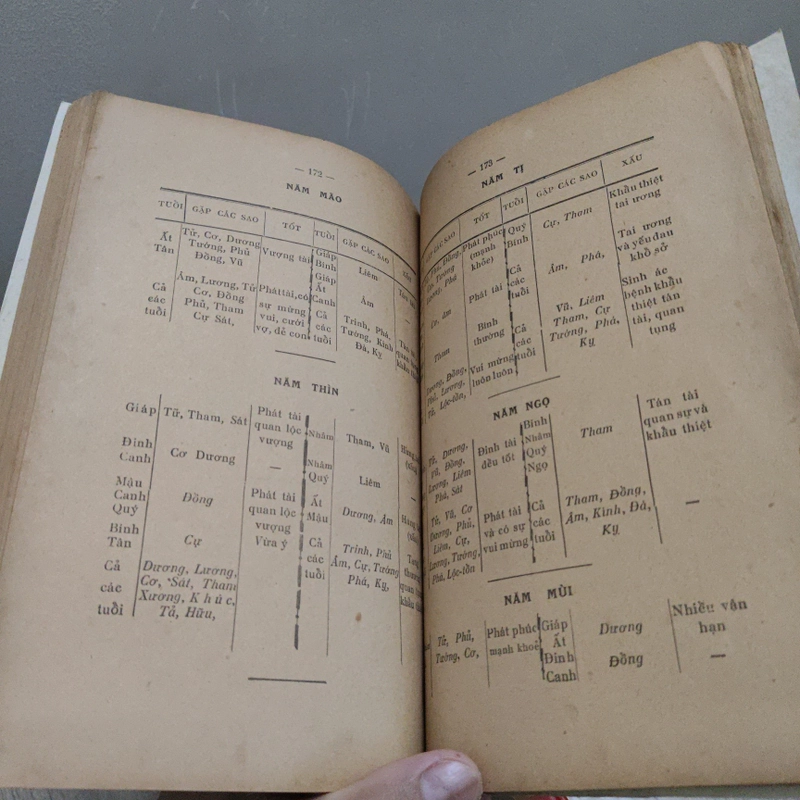 — 172 —
NĂM MÃO
TUỔI GẶP CÁC SAO TỐT TUỔI GẶP CÁC SAO
Ất Tử, Cơ, Dương Vượng tài Giáp Liêm
Tân Tướng, Phủ Bính
Đồng, Vũ Giáp
Ất Ám
Cả Ám, Lương, Tử Phát tài, có Canh —
các Cơ, Đồng sự mừng Cả Trình, Phá,
tuổi Phủ, Tham vui, cưới các Tướng, Kình
Cự Sát, vợ, đẻ con tuổi Đà, Kỵ
NĂM THÌN
Giáp Tử, Tham, Sát Phát tài Nhâm Tham, Vũ
quan lộc
vượng
Đinh Cơ Dương — Nhâm Liêm
Canh Quý
Mậu Đồng Phát tài Ất Dương, Ám
Canh quan lộc Mậu
Quý vượng
Bính Cự Vừa ý Cả Trình, Phủ
Tân các Ám, Cự, Tướng
tuổi Phá, Kỵ,
Cả Dương, Lương,
các Cơ, Sát, Tham
tuổi Xương, Khúc,
Tả, Hữu,
— 173 —
NĂM TỊ
GẶP CÁC SAO TỐT TUỔI GẶP CÁC SAO XẤU
Phát phúc Quý Cự, Tham Khẩu thiệt
(mạnh Bính tai ương
khỏe)
Phát tài Cả Ám, Phá, Tai ương
các và yếu đau
tuổi khổ sở
Tham Bình Cả Vũ, Liêm Sinh ác
thường các Tham, Cự bệnh khẩu
tuổi Tướng, Phá, thiệt tán
Kỵ tài, quan
tụng
Lương, Đồng, Vui mừng
Phủ, Lương, luôn luôn
Tả, Lộc-tồn,
NĂM NGỌ
Tử, Dương, Đinh tài Bính Tham Tán tài
Vũ, Đồng, đều tốt Nhâm quan sự và
Lương, Liêm Quý khẩu thiệt
Phá, Sát Ngọ
Tử, Vũ, Cơ Phát tài Cả Tham, Đồng, —
Dương, Phủ, và có sự các Ám, Kình, Đà,
Liêm, Cự, vui mừng tuổi Kỵ
Lương, Tướng,
Phá, Lộc-tồn
NĂM MÙI
Tử, Phủ, Phát phúc Giáp Dương Nhiều vận
Tướng, Cơ, mạnh khoẻ Ất hạn
Đinh Đồng —
Canh